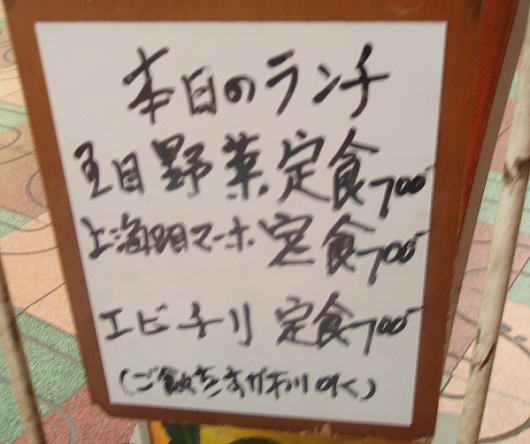 本日のランチ
五目野菜定食700
上海風マーボ定食700
エビチリ定食700
(ご飯おかわりOK)